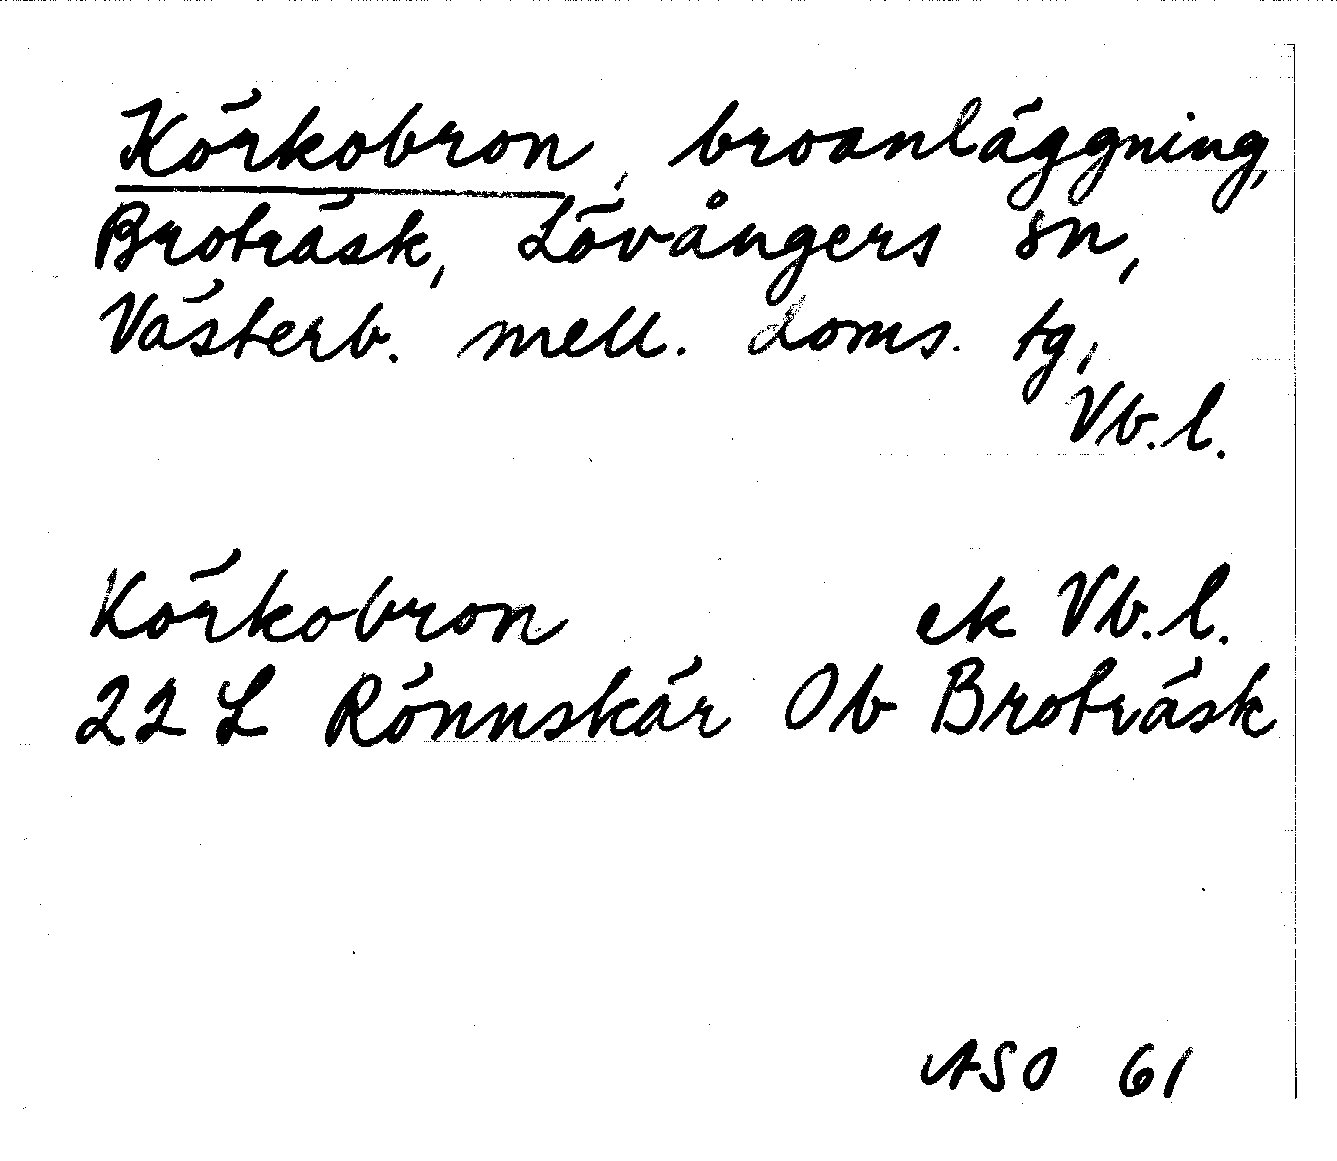 Körkobron, broanläggning,
Broträsk, Lövångers sn,
Västerb. mell. doms. tg,
Vb. l.
Körkobron ek Vb. l.
22 L Rönnskär Ob Broträsk
ASO 61